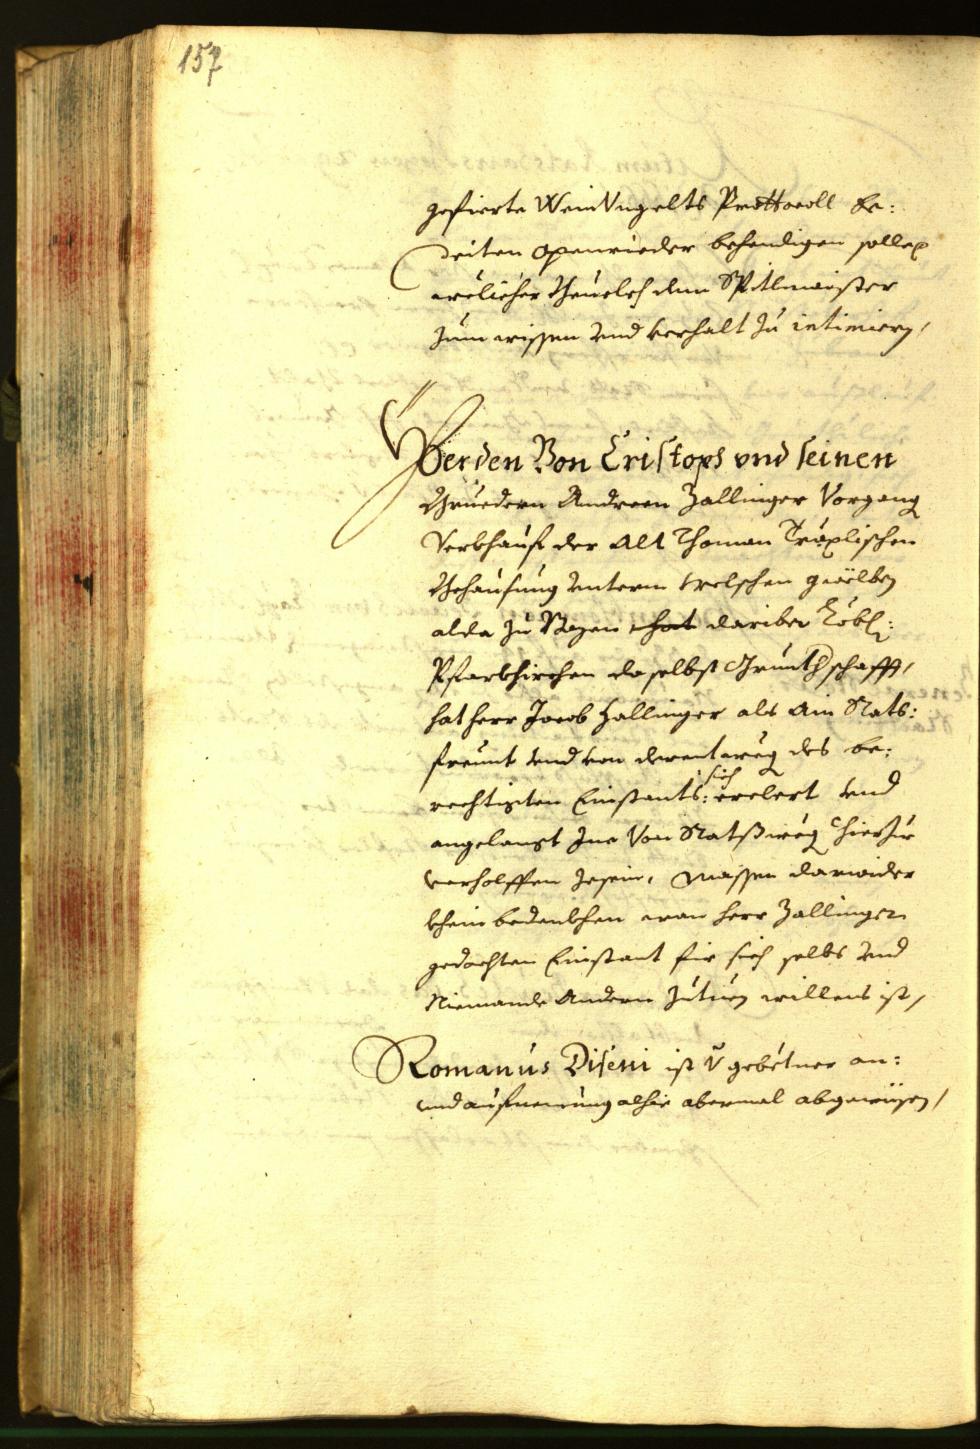 157
gefierte Wein Vngelts Prottocoll be:
deiten openrieder behendigen solle,
welicher Beuelch dem Spitlmaister
zum wissen vnd verhalt zu intimiern,
Werden Von Cristoph vnd seinen
Bruedern Andreen Zallinger Vorgang
Verkhauf der Alt Thoman Träxlischen
Behausung vnterm welschen gwölben
alda zu Bozen hat dariber Löbl:
Pfarkhirchen daselbst Grundtschafft,
hat herr Jacob Zallinger als Ain Rats:
freunt vnd von derentweg des be:
rechtigten Einstants: sich erclert vnd
angelangt Ine Von Ratßweg hierzue
verholffen zesein, Massen darwider
khein bedenkhen wan herr Zallinger
gedachten Einstant für sich selbs vnd
Niemands Andern zutuen willens ist,
Romanus Diseni ist v̈ gebetner an:
vnd aufnemung alhie abermal abgewisen,